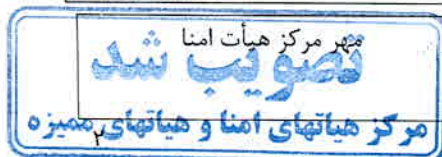 مهر مرکز هیأت امنا
تصویب شد
مرکز هیاتهای امنا و هیاتهای ممیزه
۲